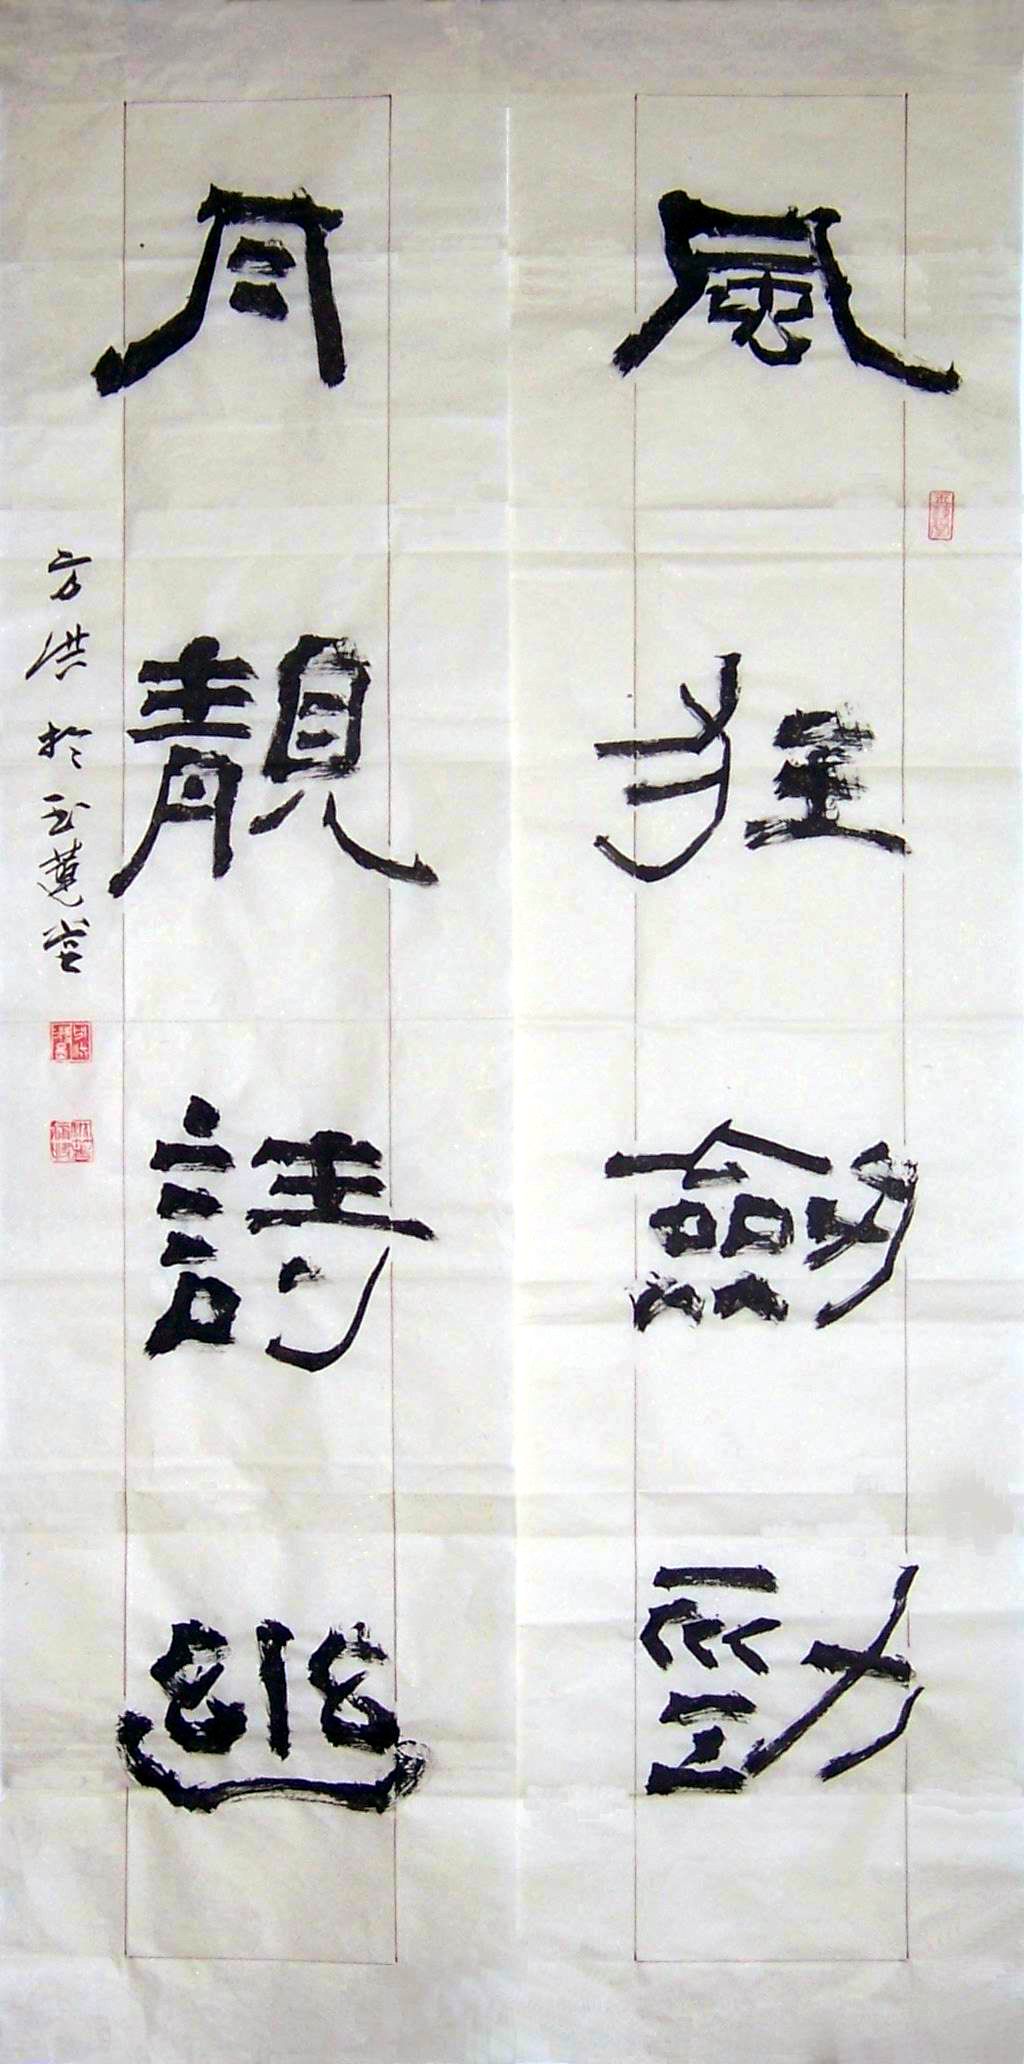 風狂劍勁
月靚詩幽
方洪於玉慧堂